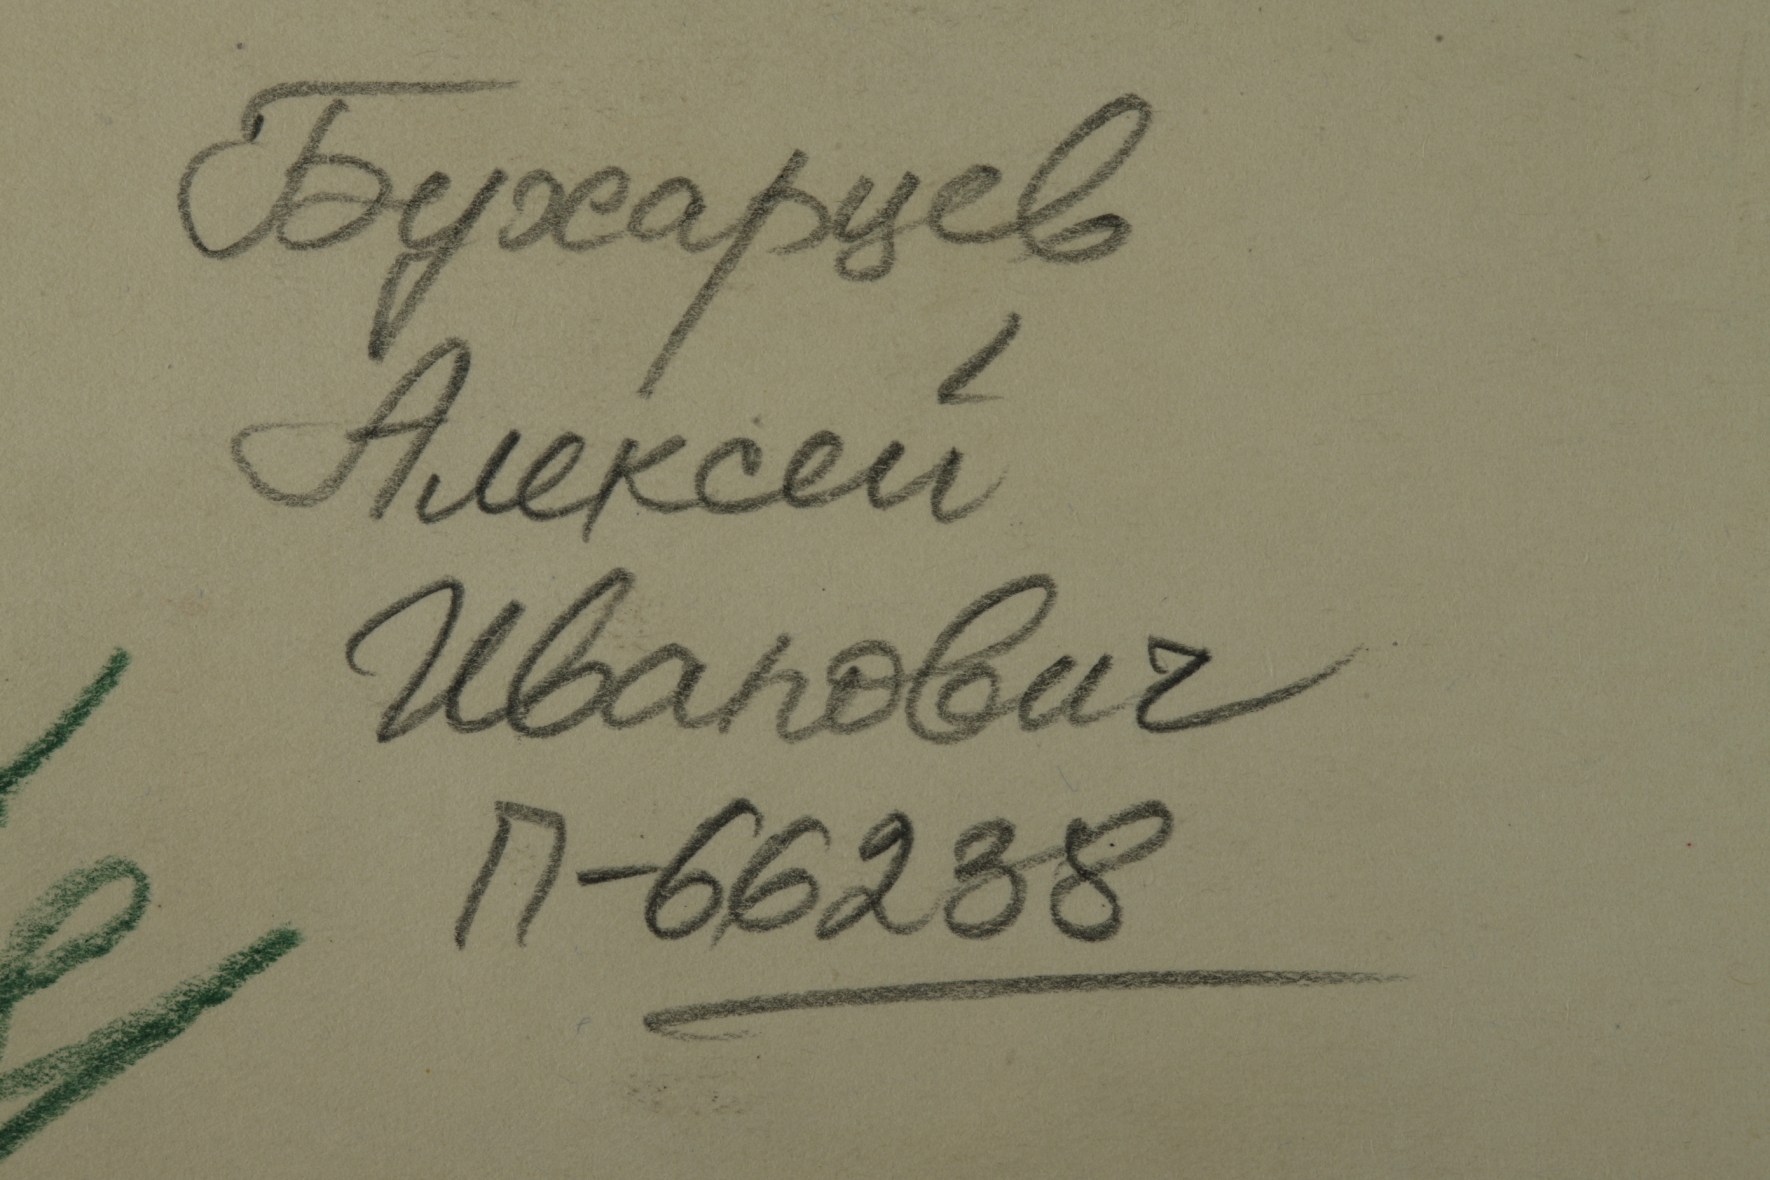 Бухарцев
Алексей
Иванович
П-66238